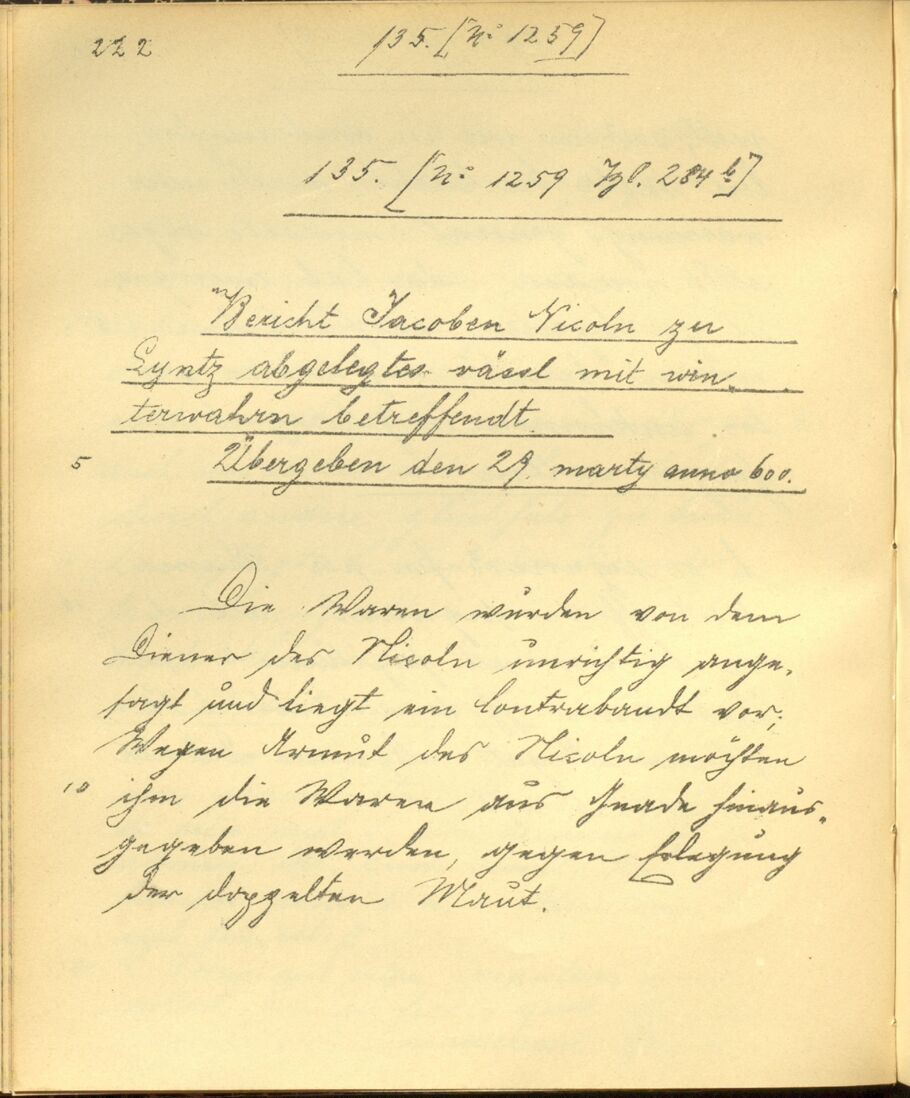 222
135. [N° 1259]
135. [N° 1259 Bl. 284 b]
"Bericht Jacoben Nicoln zu
Lyntz abgelegtes vässl mit win„
terwahrn betreffendt
5 Übergeben den 29. marty anno 600.
Die Waren wurden von dem
Diener des Nicoln unrichtig ange„
sagt und liegt ein Contrabandt vor;
Wegen Armut des Nicoln möchten
10 ihm die Waren aus Gnade hinaus„
gegeben werden, gegen Erlegung
der doppelten Maut.